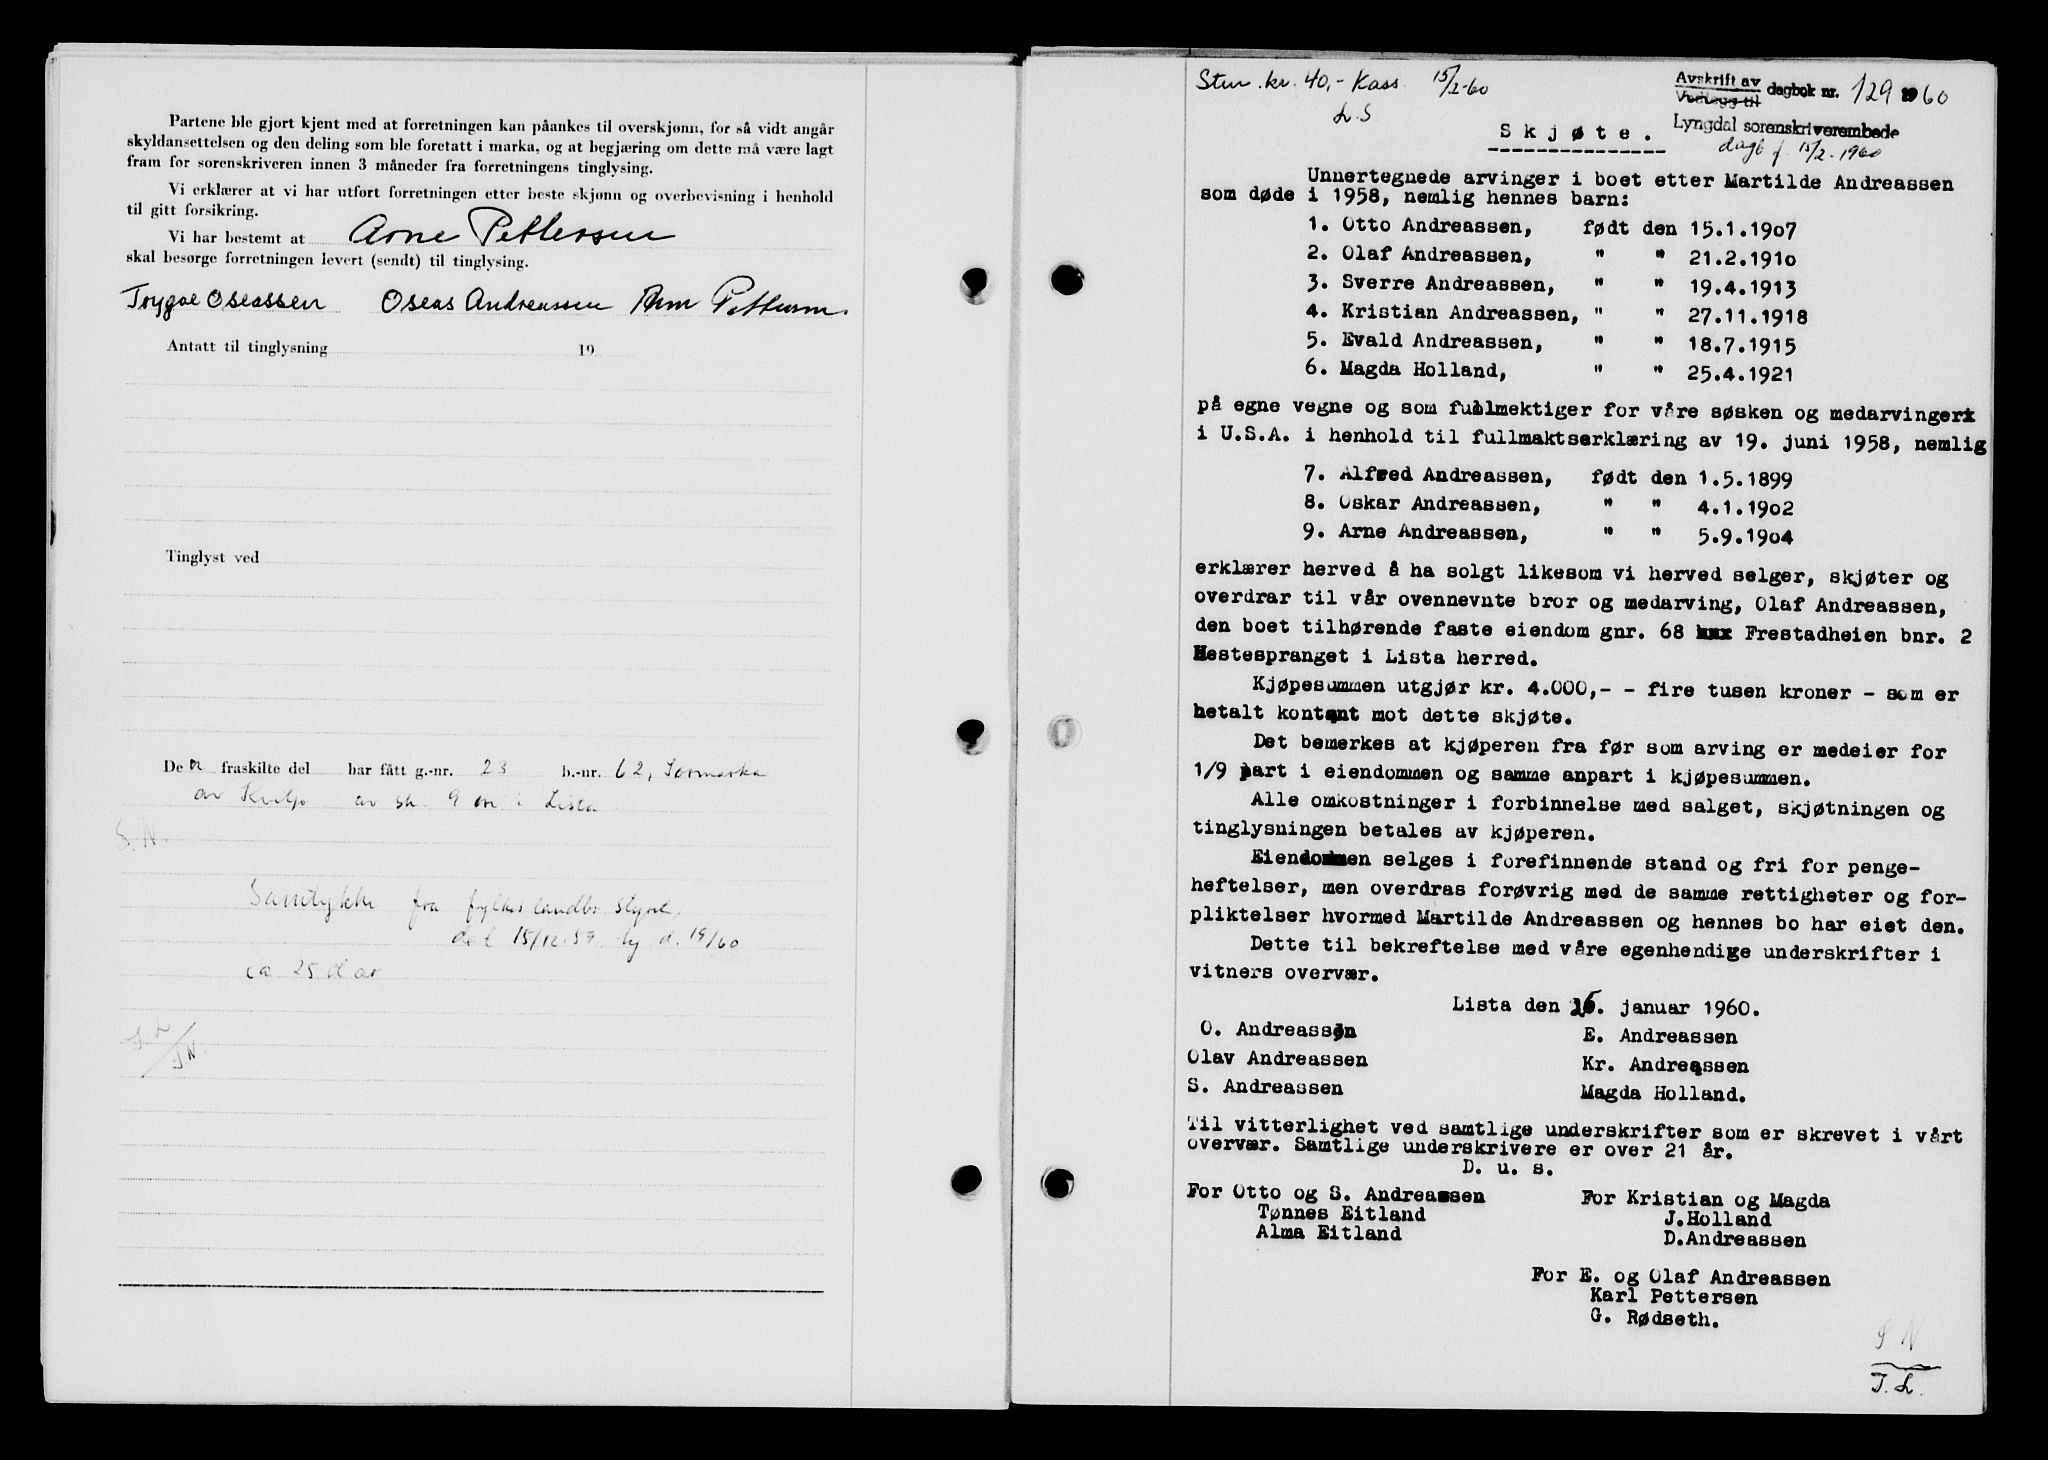 Partene ble gjort kjent med at forretningen kan påankes til overskjønn, for så vidt angår
skyldansettelsen og den deling som ble foretatt i marka, og at begjæring om dette må være lagt
fram for sorenskriveren innen 3 måneder fra forretningens tinglysing.
Vi erklærer at vi har utført forretningen etter beste skjønn og overbevisning i henhold
til gitt forsikring.
Vi har bestemt at Arne Pettersen
skal besørge forretningen levert (sendt) til tinglysing.
Trygve Oseassen Oseas Andreassen Arne Pettersen
Antatt til tinglysning 19
Tinglyst ved
Den fraskilte del har fått g.-nr. 23 b.-nr. 62, Sørmarka
av Kviljo av sk. 9 øre i Lista
S. N.
Samtykke fra fylkes landbr. styret,
dat 15/12-59 d. 19/60
ca 25 dar
S.L/J.N.
Stm. kr. 40,- Kass. 15/2-60
L.S
Avskrift av
Vedlegg til dagbok nr. 129 1960
Lyngdal sorenskriverembede
dagb f. 15/2-1960
Skjøte.
Unnertegnede arvinger i boet etter Martilde Andreassen
som døde i 1958, nemlig hennes barn:
1. Otto Andreassen, født den 15.1.1907
2. Olaf Andreassen, " " 21.2.1910
3. Sverre Andreassen, " " 19.4.1913
4. Kristian Andreassen, " " 27.11.1918
5. Evald Andreassen, " " 18.7.1915
6. Magda Holland, " " 25.4.1921
på egne vegne og som fullmektiger for våre søsken og medarvinger
i U.S.A. i henhold til fullmaktserklæring av 19. juni 1958, nemlig
7. Alfred Andreassen, født den 1.5.1899
8. Oskar Andreassen, " " 4.1.1902
9. Arne Andreassen, " " 5.9.1904
erklærer herved å ha solgt likesom vi herved selger, skjøter og
overdrar til vår ovennevnte bror og medarving, Olaf Andreassen,
den boet tilhørende faste eiendom gnr. 68 Frestadheien bnr. 2
Hestespranget i Lista herred.
Kjøpesummen utgjør kr. 4.000,- - fire tusen kroner - som er
betalt kontant mot dette skjøte.
Det bemerkes at kjøperen fra før som arving er medeier for
1/9 part i eiendommen og samme anpart i kjøpesummen.
Alle omkostninger i forbinnelse med salget, skjøtningen og
tinglysningen betales av kjøperen.
Eiendommen selges i forefinnende stand og fri for penge-
heftelser, men overdras forøvrig med de samme rettigheter og for-
pliktelser hvormed Martilde Andreassen og hennes bo har eiet den.
Dette til bekreftelse med våre egenhendige underskrifter i
vitners overvær.
Lista den 26. januar 1960.
O. Andreassen E. Andreassen
Olav Andreassen Kr. Andreassen
S. Andreassen Magda Holland.
Til vitterlighet ved samtlige underskrifter som er skrevet i vårt
overvær. Samtlige underskrivere er over 21 år.
D. u. s.
For Otto og S. Andreassen For Kristian og Magda
Tønnes Eitland J.Holland
Alma Eitland D.Andreassen
For E. og Olaf Andreassen
Karl Pettersen
G. Rødseth.
S N
J. L.